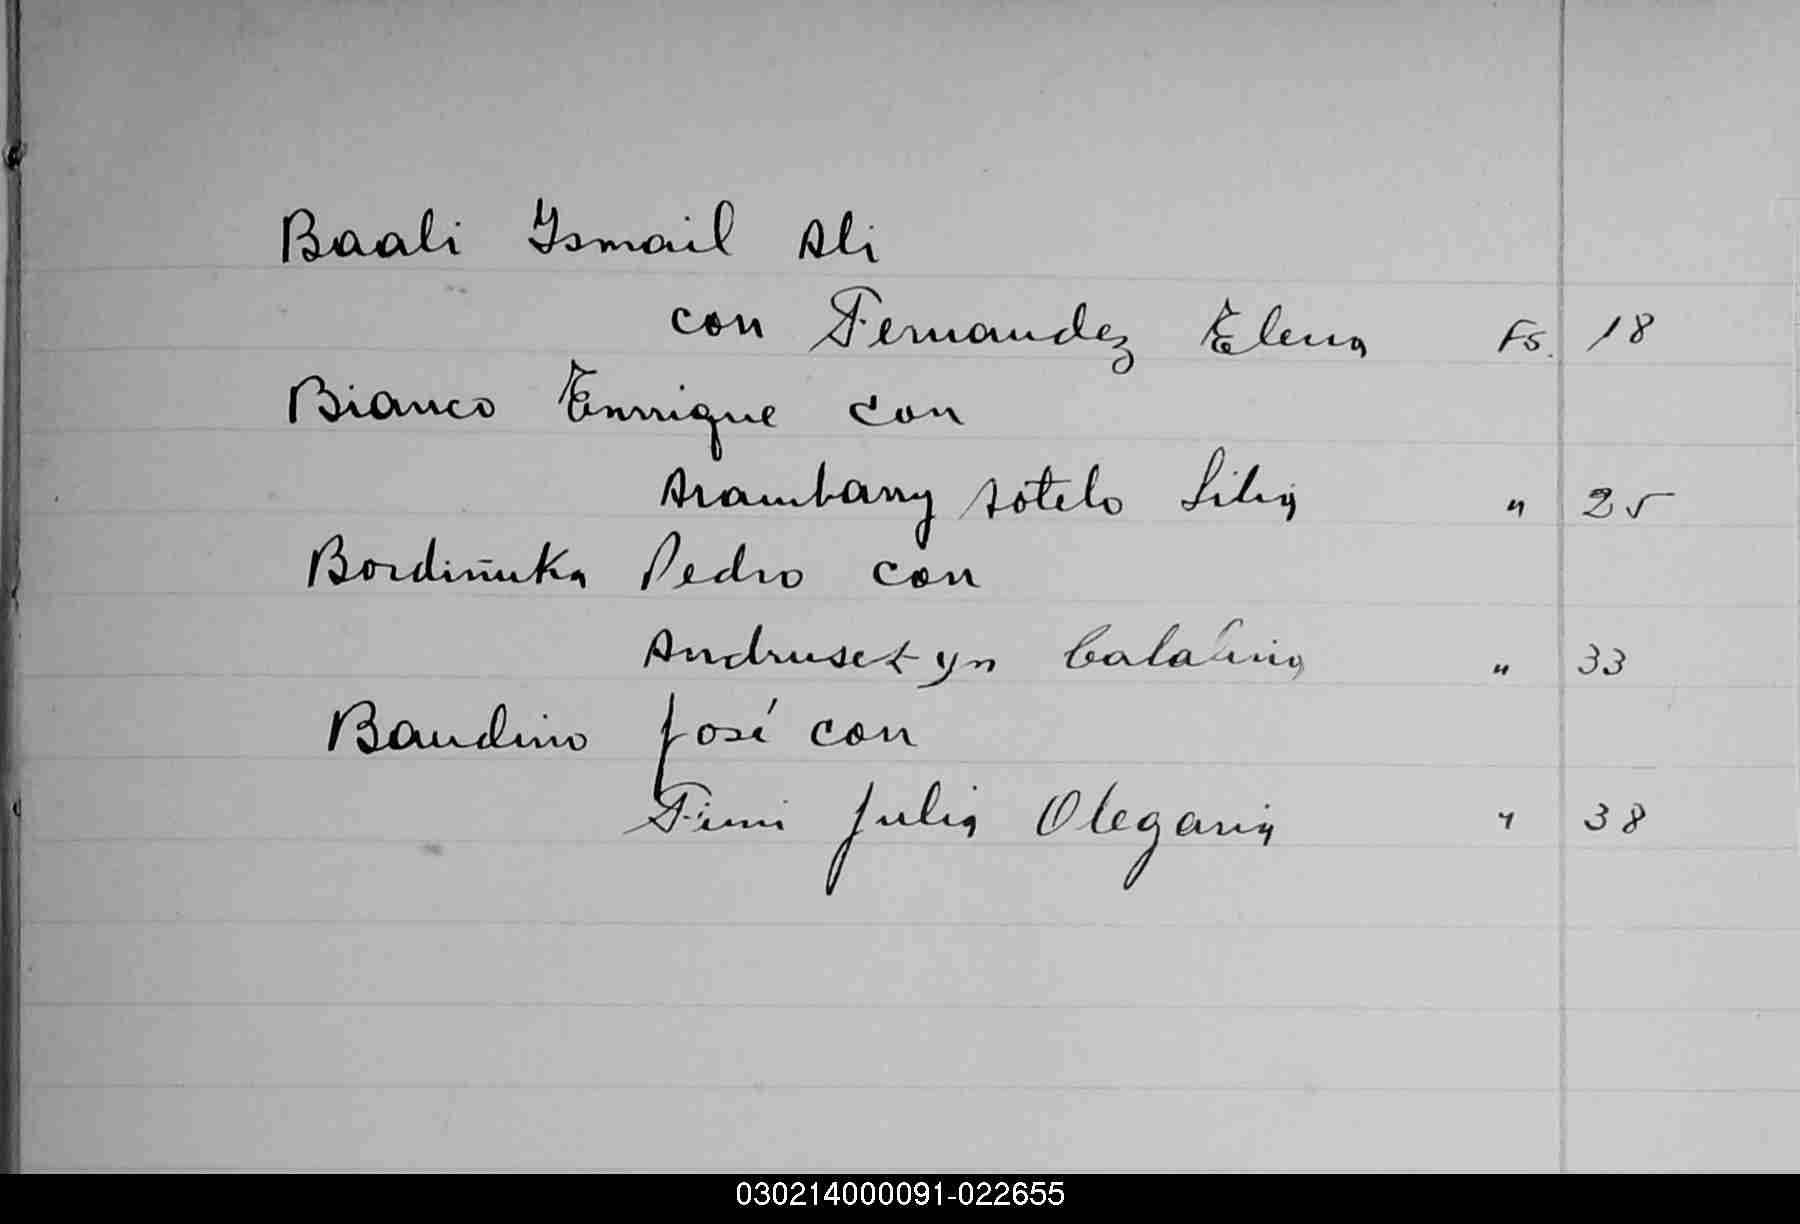 Baali Ismail Ali
con Fernandez Elena Fs. 18
Bianco Enrique con
Arambarry Sotelo Lilia " 25
Bordiñuka Pedro con
Andrusetyn Catalina " 33
Baudino José con
Fimi Julia Olegaria " 38
030214000091-022655